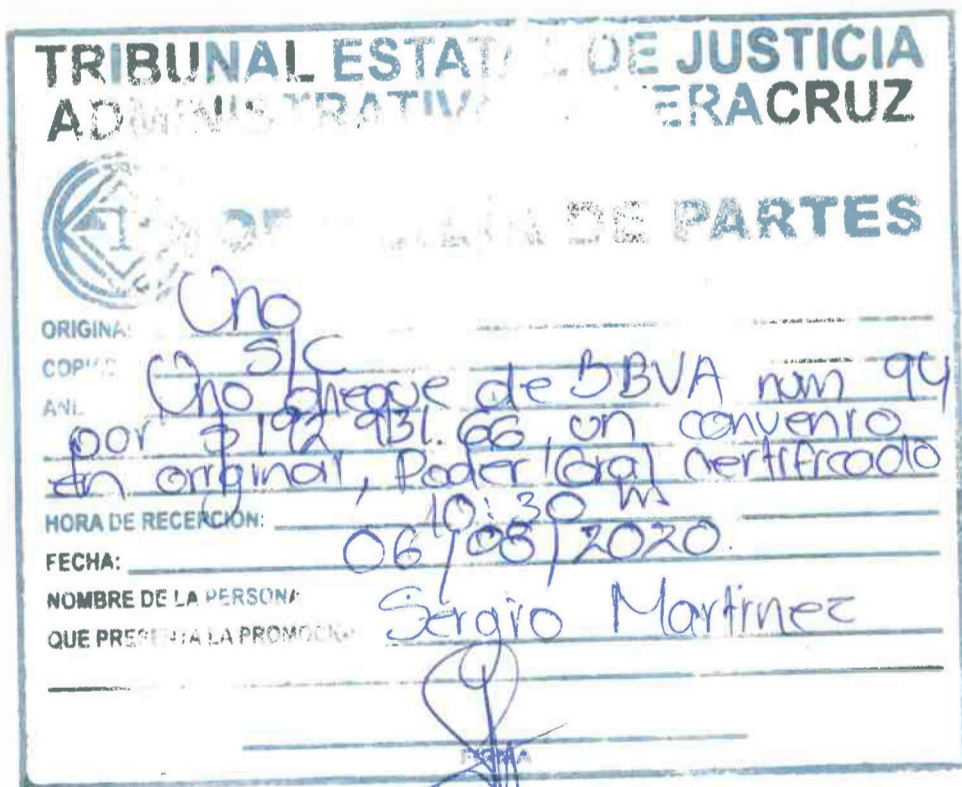 TRIBUNAL ESTATAL DE JUSTICIA
ADMINISTRATIVA VERACRUZ
DE PARTES
ORIGINAL: Uno
COPIAS: S/C
Uno cheque de BBVA num 94
por $ 192 931.66, un convenio
en original, Poder Gral certificado
HORA DE RECEPCIÓN: 10:30 m
FECHA: 06/08/2020
NOMBRE DE LA PERSONA
QUE PRESENTA LA PROMOCIÓN Sergio Martinez
FIRMA